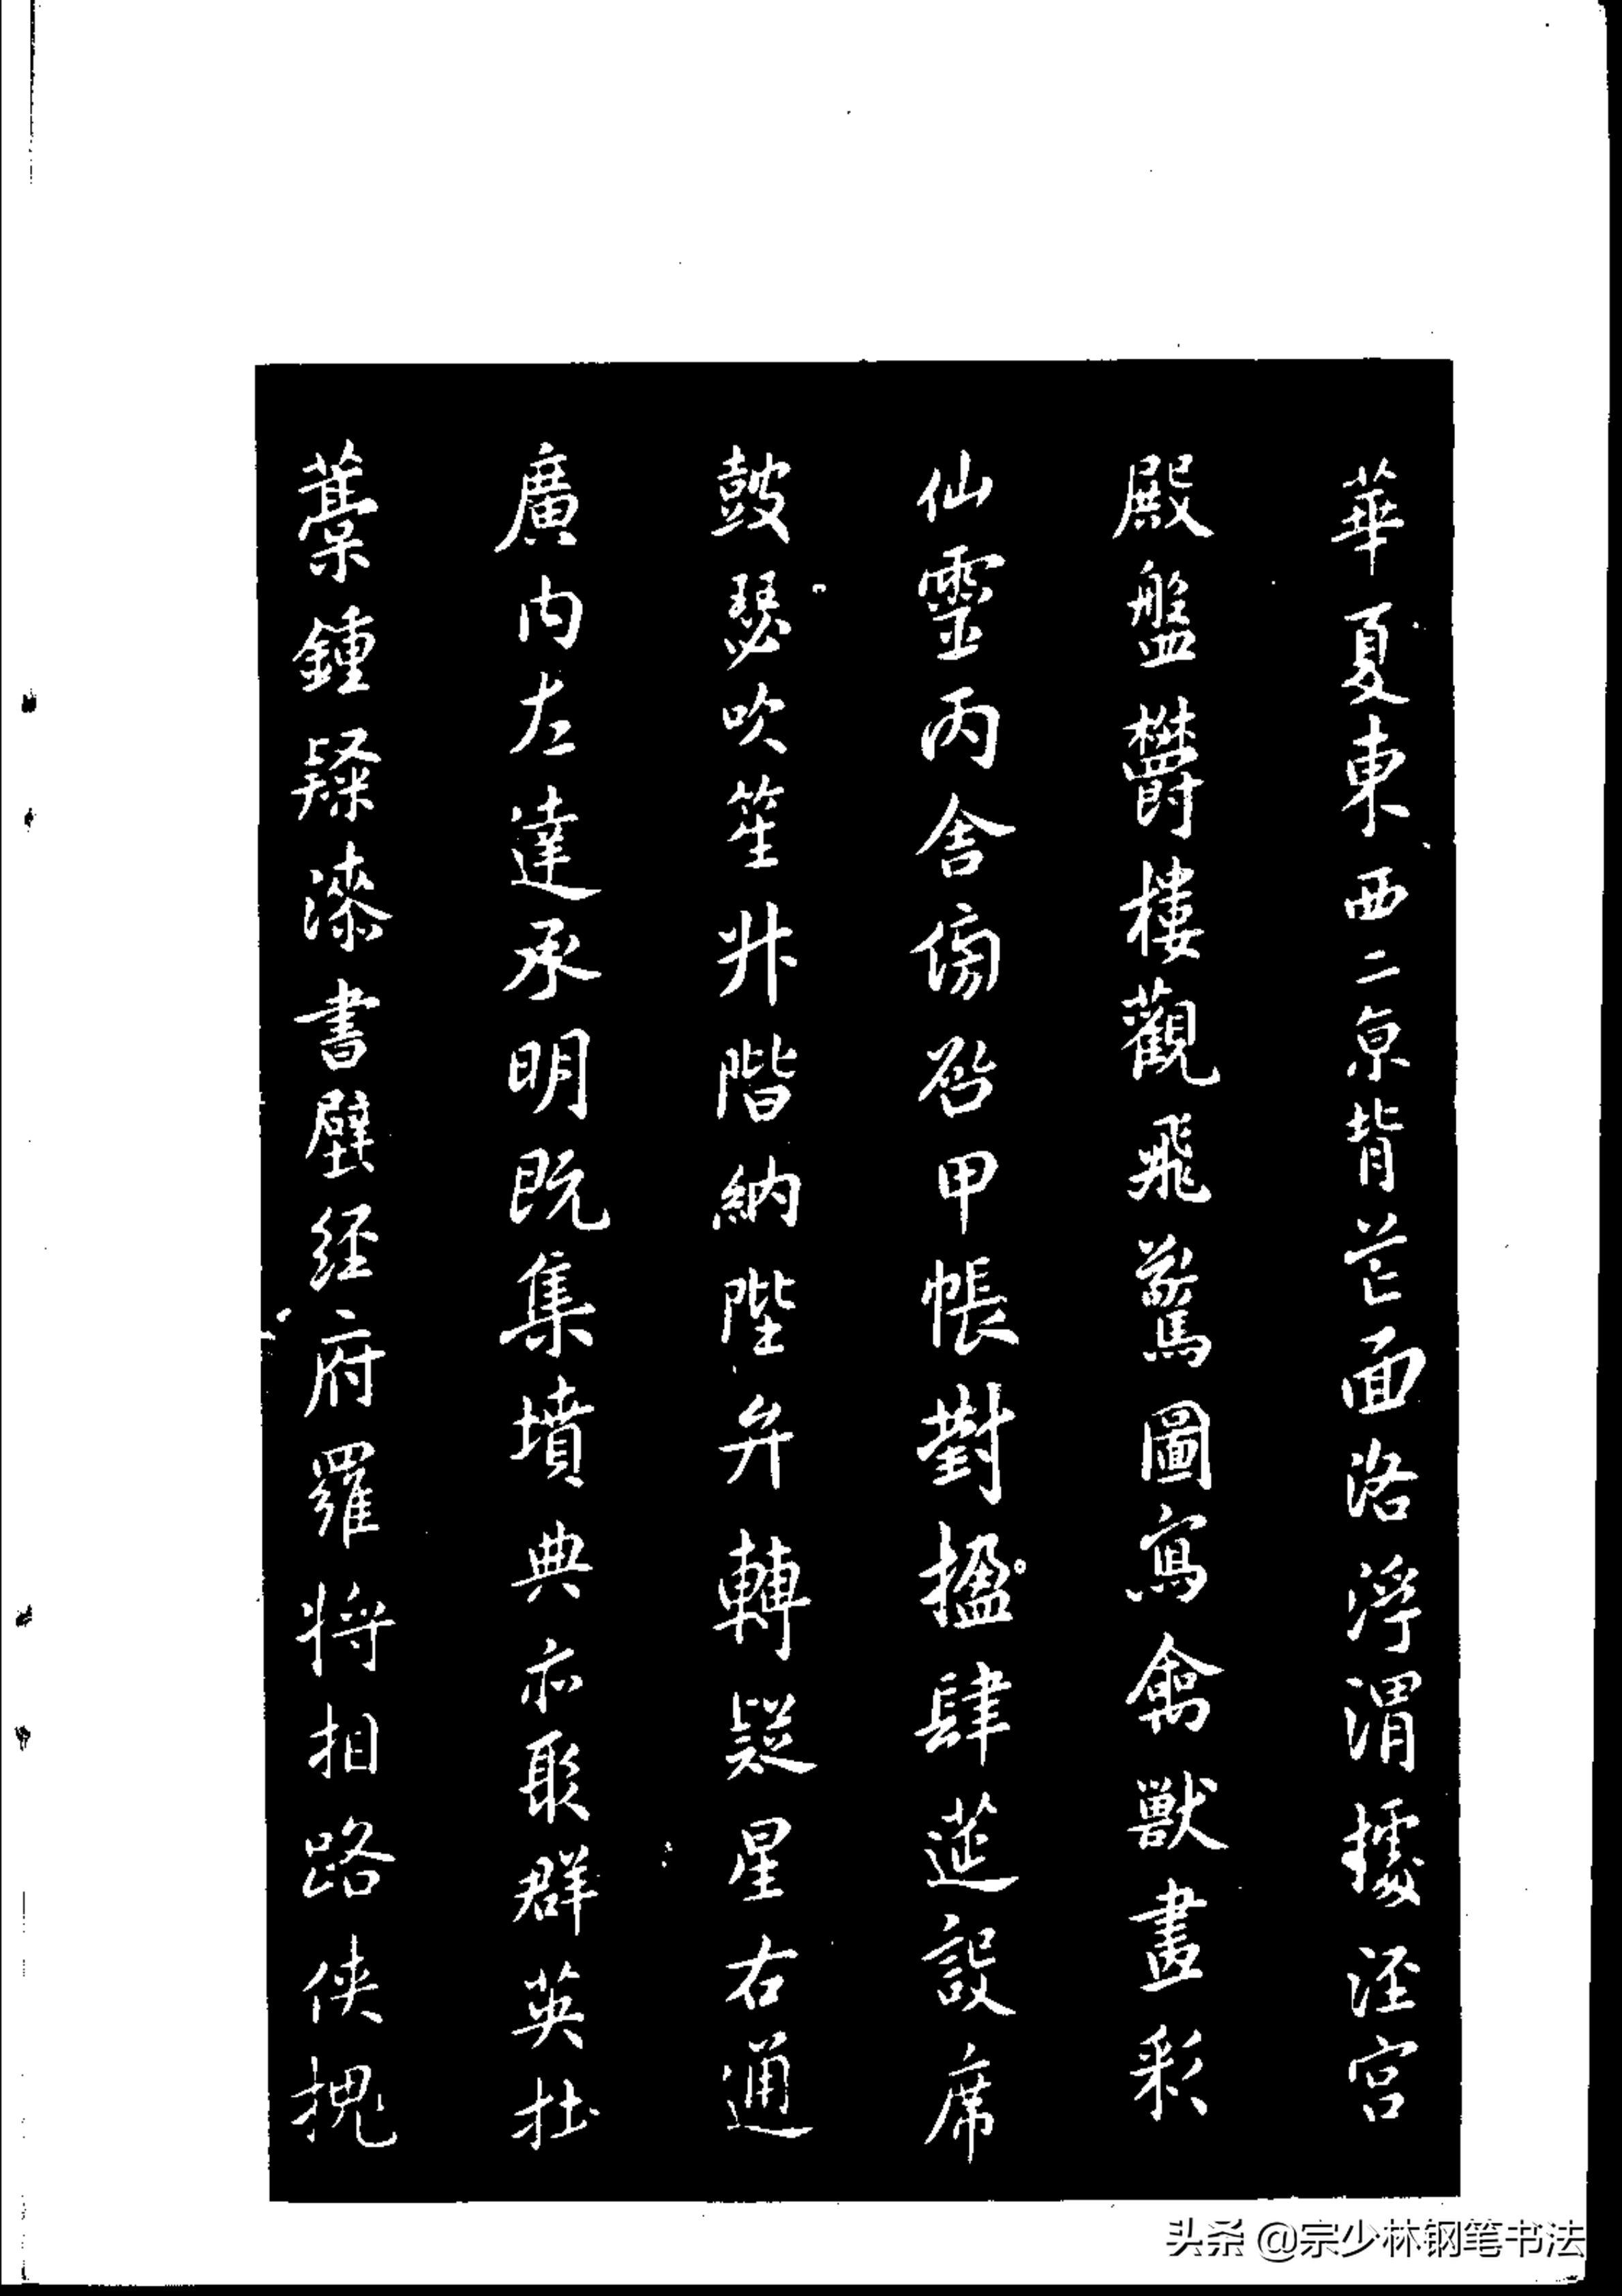 華夏東西二京背芒面洛浮渭據涇宮
殿盤欝樓觀飛驚圖寫禽獸畫彩
仙靈丙舍傍啟甲帳對楹肆莚設席
鼓瑟吹笙升階納陛弁轉疑星右通
廣內左達承明既集墳典亦聚群英杜
藁鍾隸漆書壁經府羅將相路俠槐
头条 @宗少林钢笔书法